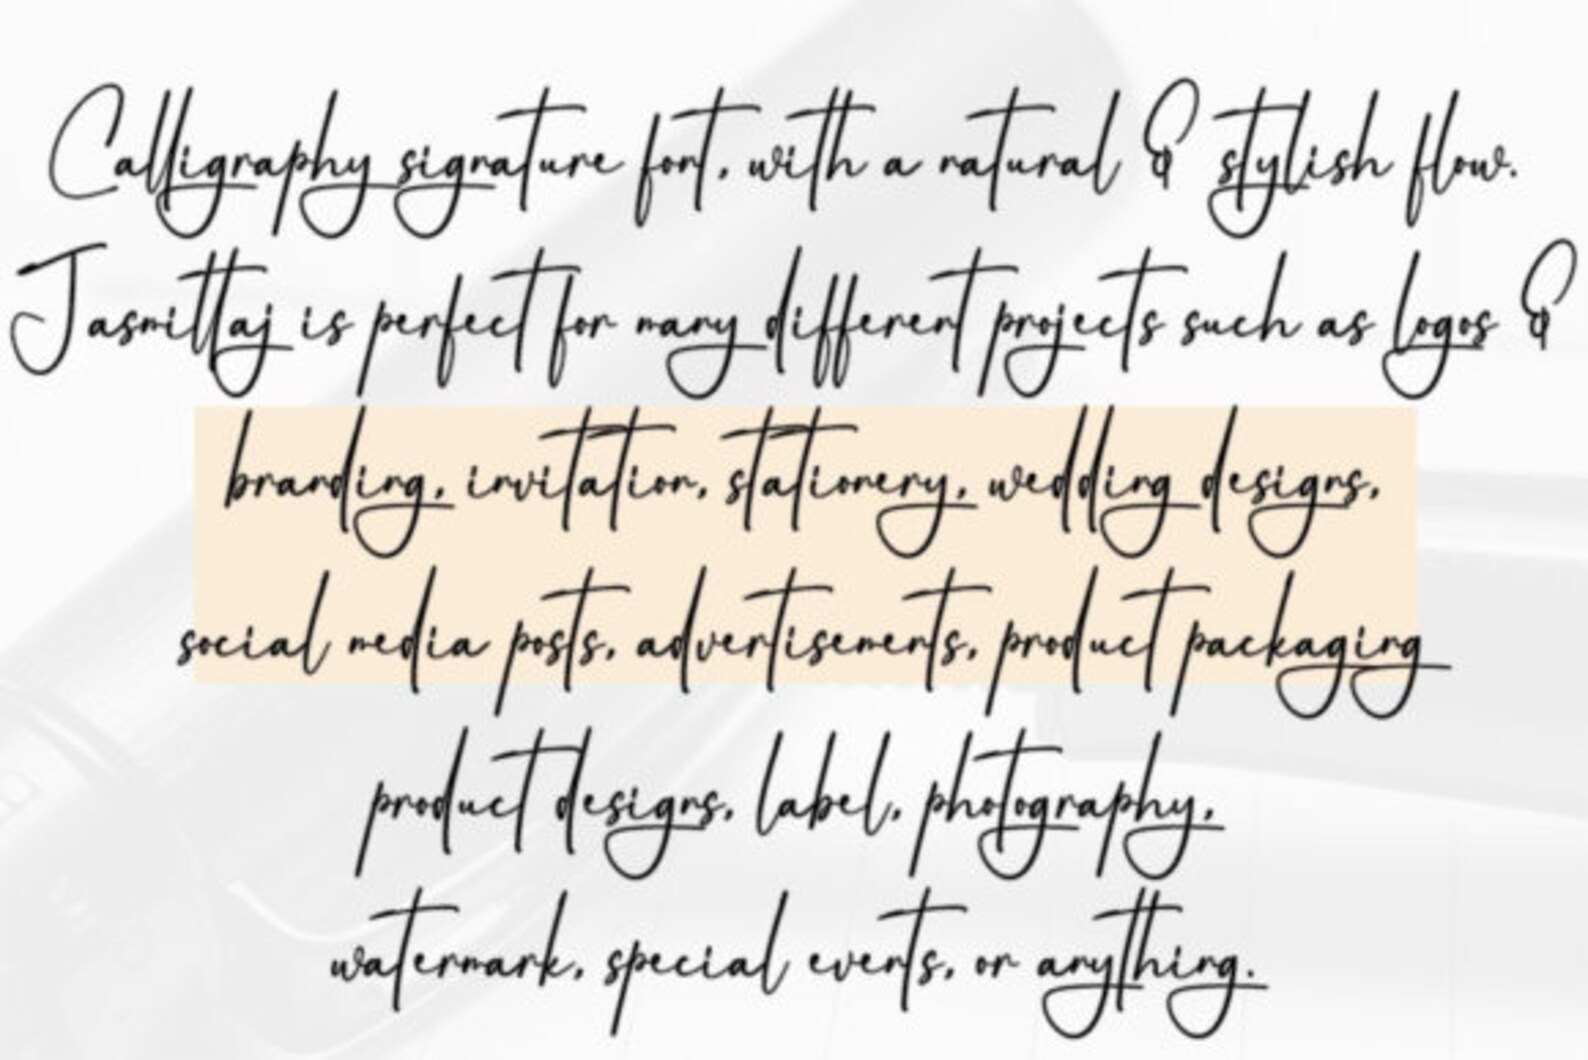 Calligraphy signature font, with a natural & stylish flow.
Jasmittaj is perfect for many different projects such as logos &
branding, invitation, stationery, wedding designs,
social media posts, advertisements, product packaging
product designs, label, photography,
watermark, special events, or anything.